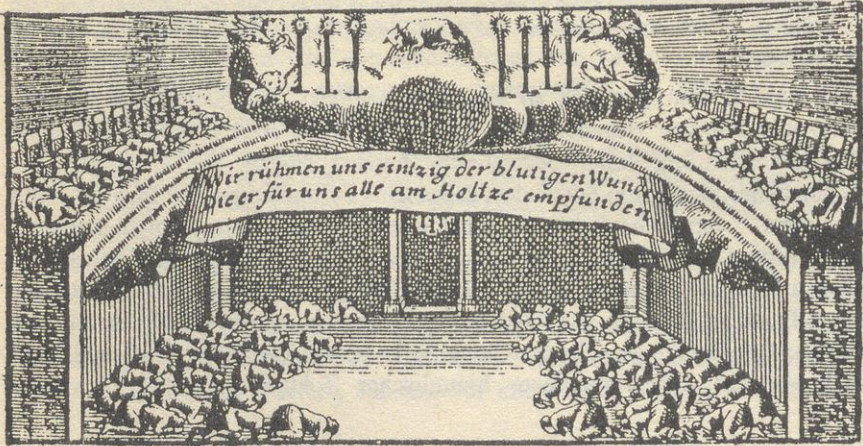 Wir rühmen uns eintzig der blutigen Wund
Die er für uns alle am Holtze empfunden